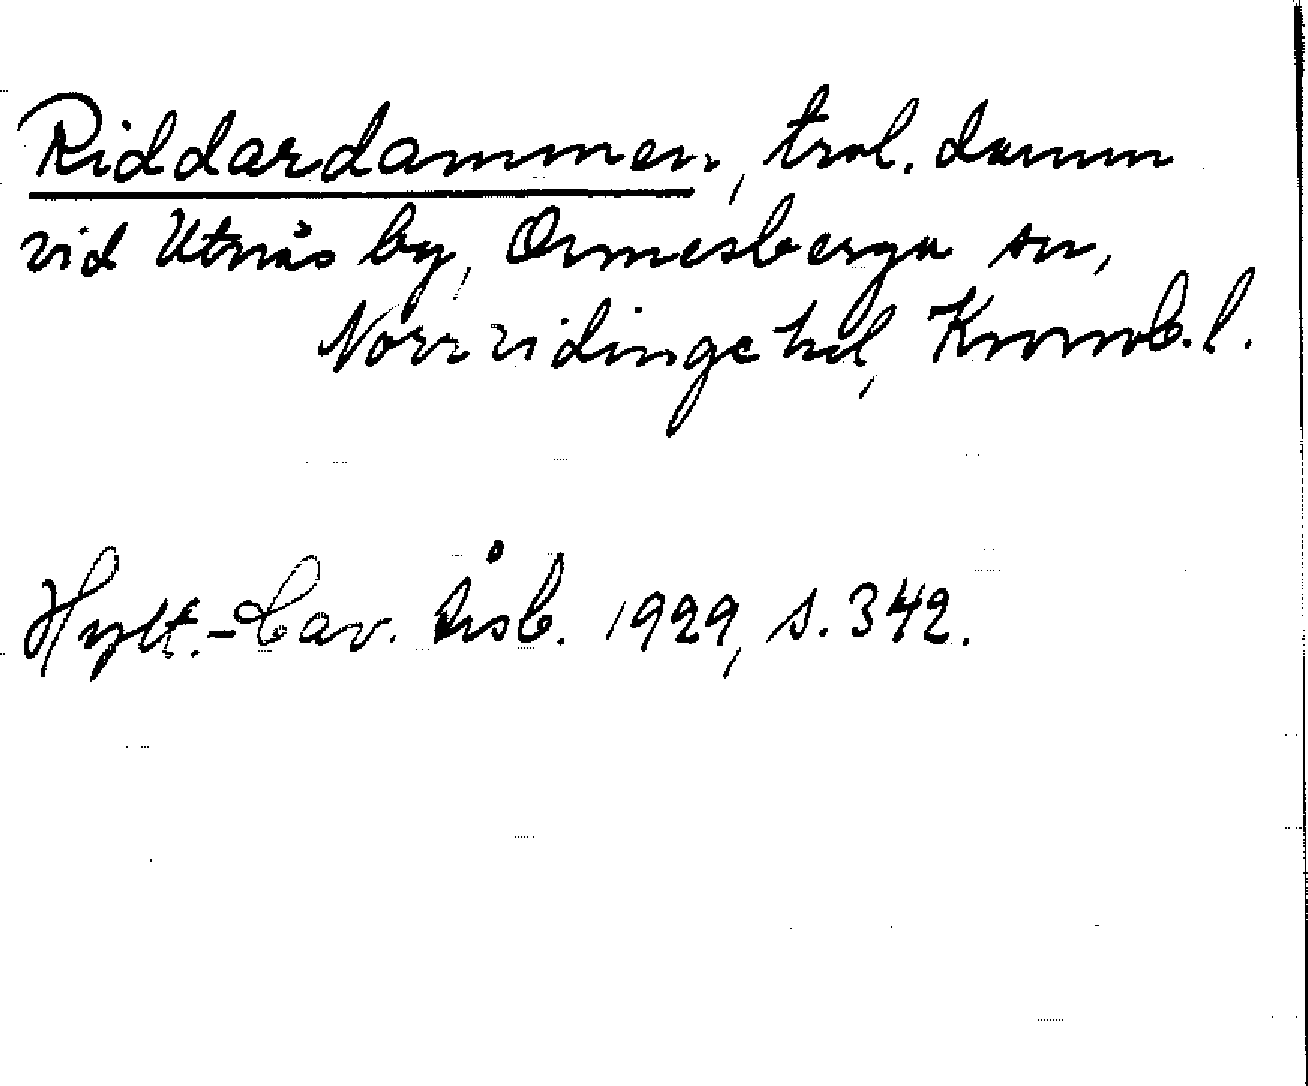 Riddardammen, trol. damm
vid Utnäs by, Ormesberga sn,
Norrvidinge hd, Kronob. l.
Hylt.-Cav. Årsb. 1929, s. 342.